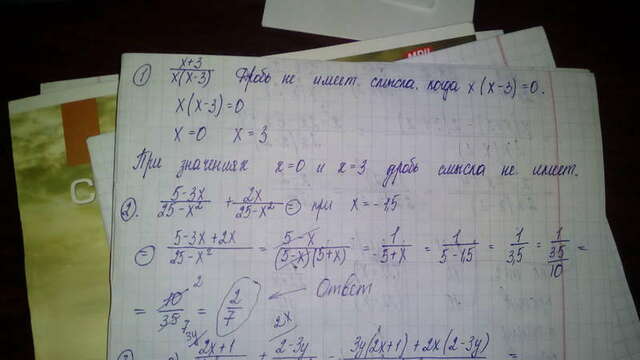 ① (x+3)/(x(x-3)) Дробь не имеет смысла, когда x(x-3)=0.
x(x-3)=0
x=0 x=3
При значениях x=0 и x=3 дробь смысла не имеет.
2. (5-3x)/(25-x²) + 2x/(25-x²) = при x=-1,5
= (5-3x+2x)/(25-x²) = (5-x)/((5-x)(5+x)) = 1/(5+x) = 1/(5-1,5) = 1/3,5 = 1/(35/10) =
= 10/35 = 2/7 ← Ответ
2 7
3y 2x
(2x+1) + (2-3y) = 3y(2x+1)+2x(2-3y) =